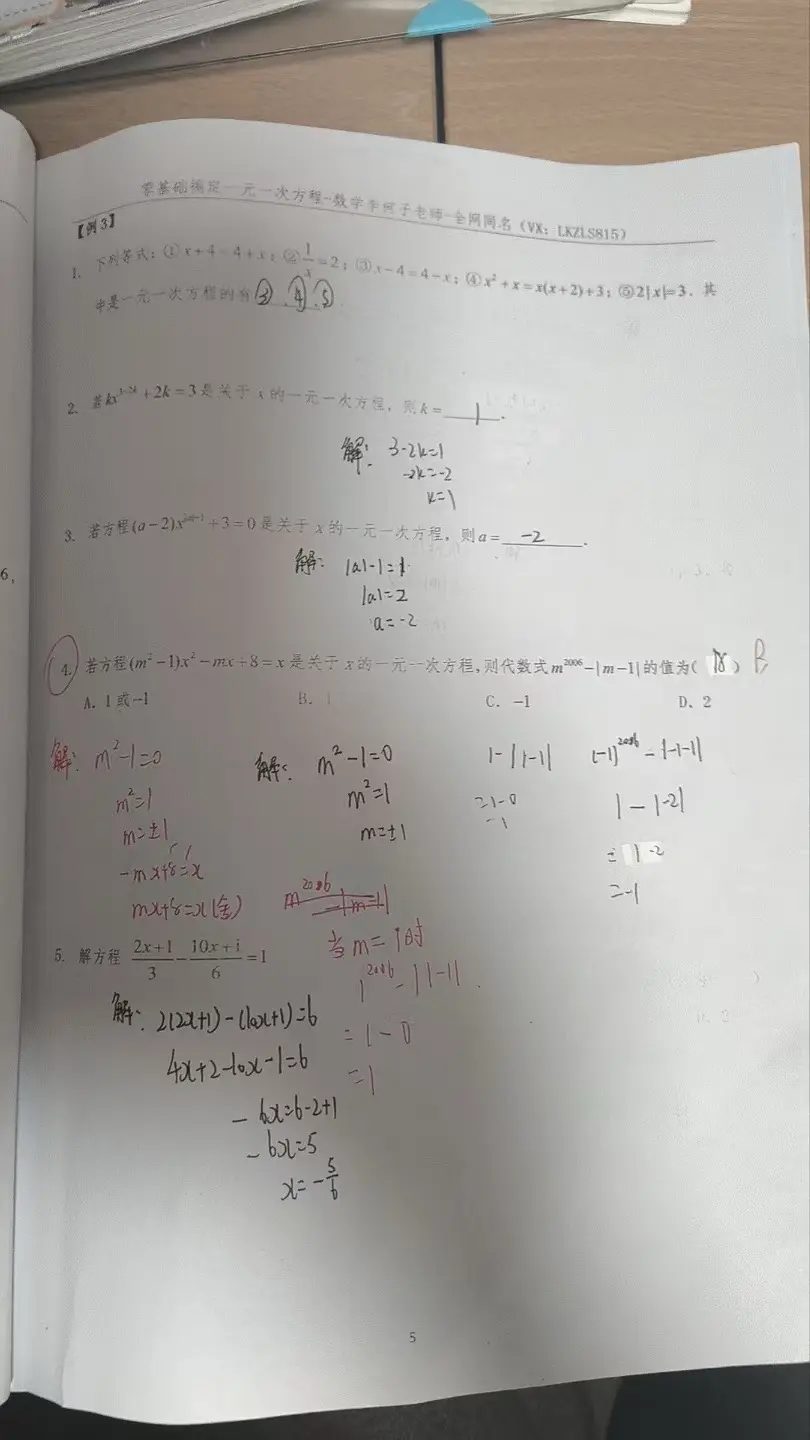 零基础搞定一元一次方程-数学李何子老师-全网同名（VX：LKZLS815）
【例3】
1. 下列等式：① x+4=4+x；② 1/x=2；③ x-4=4-x；④ x²+x=x(x+2)+3；⑤ 2|x|=3．其
中是一元一次方程的有 ③ ④ ⑤ .
2. 若 +2k=3 是关于 x 的一元一次方程，则 k= 1 .
解： 3-2k=1
-2k=-2
k=1
3. 若方程 +3=0 是关于 x 的一元一次方程，则 a= -2 .
解： |a|-1=1
|a|=2
a=-2
6,
4. 若方程(m²-1)x²-mx+8=x 是关于 x 的一元一次方程，则代数式 m²⁰⁰⁶-|m-1| 的值为( ) B
A. 1或-1 B. 1 C. -1 D. 2
解： m²-1=0
m²=1
m=±1
-mx+8=x
mx+8=x(舍)
解： m²-1=0
m²=1
m=±1
m²⁰⁰⁶-|m-1|
当 m=1时
1²⁰⁰⁶-|1-1|
=1-0
=1
1-|1-1|
=1-0
=1
(-1)²⁰⁰⁶-|-1-1|
1-|-2|
= 1-2
=-1
5. 解方程 (2x+1)/3 - (10x+1)/6 = 1
解： 2(2x+1)-(10x+1)=6
4x+2-10x-1=6
-6x=6-2+1
-6x=5
x=-5/6
5